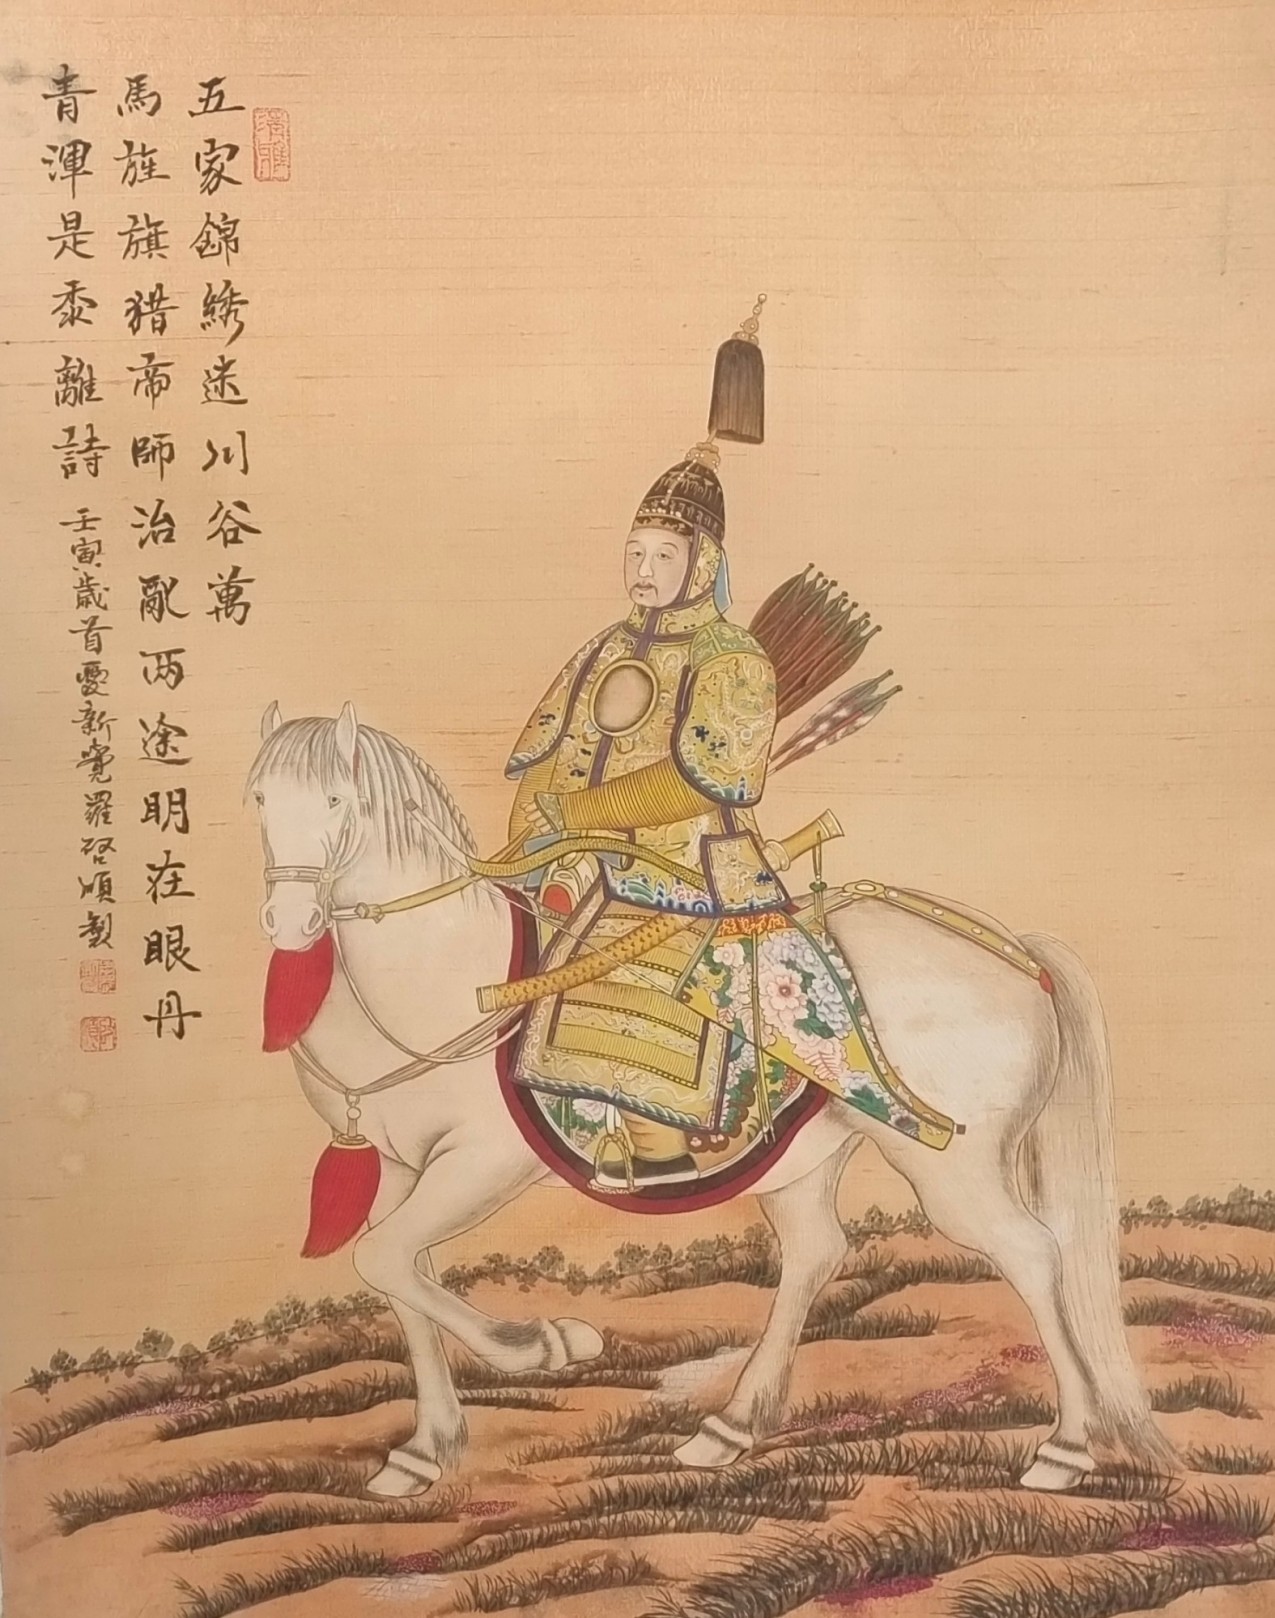 五家錦綉迷川谷萬
馬旌旗猎帝師治亂两途明在眼丹
青渾是黍離詩
壬寅歲首愛新覺羅啓順製